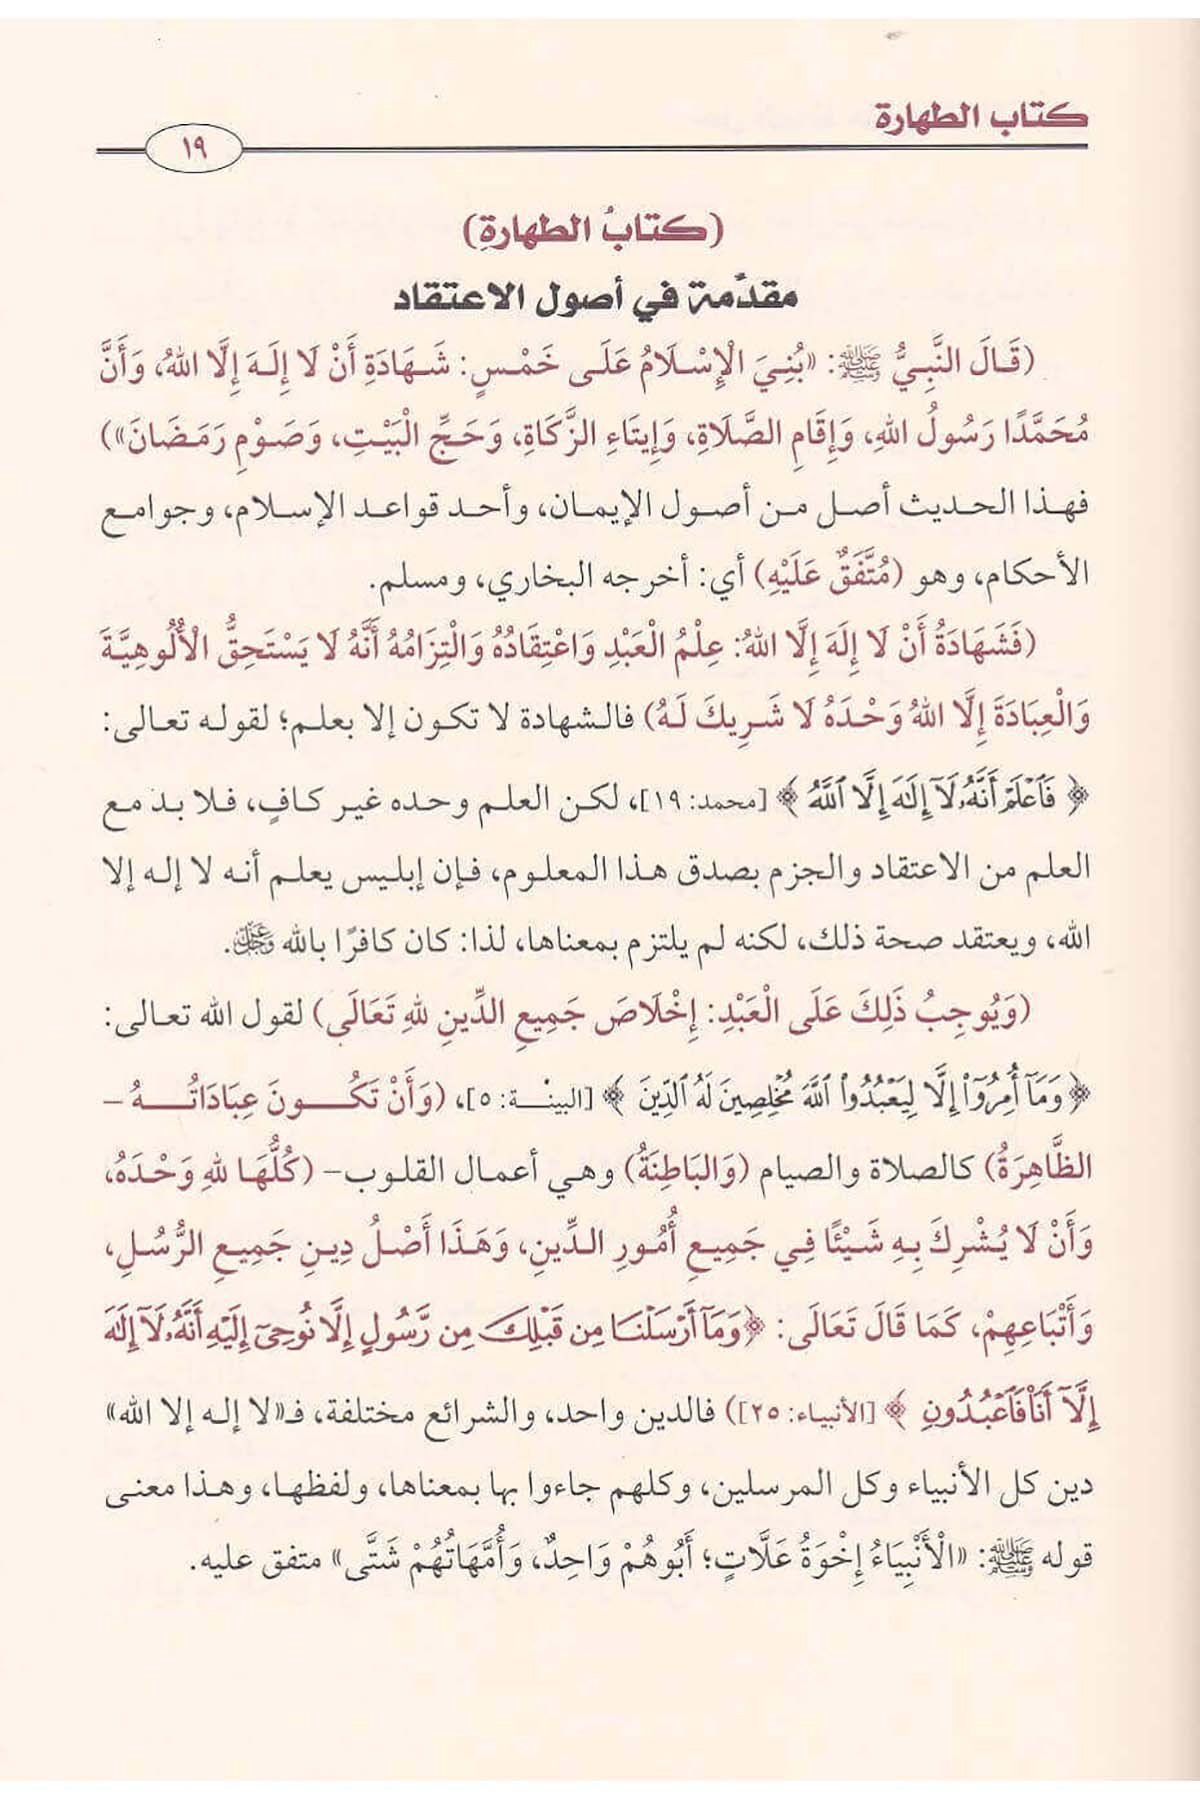 كتاب الطهارة
١٩
(كتابُ الطهارةِ)
مقدّمة في أصول الاعتقاد
(قَالَ النَّبِيُّ ﷺ: «بُنِيَ الْإِسْلَامُ عَلَى خَمْسٍ: شَهَادَةِ أَنْ لَا إِلَهَ إِلَّا اللهُ، وَأَنَّ
مُحَمَّدًا رَسُولُ اللهِ، وَإِقَامِ الصَّلَاةِ، وَإِيتَاءِ الزَّكَاةِ، وَحَجِّ الْبَيْتِ، وَصَوْمِ رَمَضَانَ»)
فهذا الحديث أصل من أصول الإيمان، وأحد قواعد الإسلام، وجوامع
الأحكام، وهو (مُتَّفَقٌ عَلَيْهِ) أي: أخرجه البخاري، ومسلم.
(فَشَهَادَةُ أَنْ لَا إِلَهَ إِلَّا اللهُ: عِلْمُ الْعَبْدِ وَاعْتِقَادُهُ وَالْتِزَامُهُ أَنَّهُ لَا يَسْتَحِقُّ الْأُلُوهِيَّةَ
وَالْعِبَادَةَ إِلَّا اللهُ وَحْدَهُ لَا شَرِيكَ لَهُ) فالشهادة لا تكون إلا بعلم؛ لقوله تعالى:
﴿ فَٱعۡلَمۡ أَنَّهُۥ لَآ إِلَٰهَ إِلَّا ٱللَّهُ ﴾ [محمد: ١٩]، لكن العلم وحده غير كافٍ، فلا بد مع
العلم من الاعتقاد والجزم بصدق هذا المعلوم، فإن إبليس يعلم أنه لا إله إلا
الله، ويعتقد صحة ذلك، لكنه لم يلتزم بمعناها، لذا: كان كافرًا بالله عَزَّ وَجَلَّ.
(وَيُوجِبُ ذَلِكَ عَلَى الْعَبْدِ: إِخْلَاصَ جَمِيعِ الدِّينِ لِلهِ تَعَالَى) لقول الله تعالى:
﴿ وَمَآ أُمِرُوٓاْ إِلَّا لِيَعۡبُدُواْ ٱللَّهَ مُخۡلِصِينَ لَهُ ٱلدِّينَ ﴾ [البينة: ٥]، (وَأَنْ تَكُونَ عِبَادَاتُهُ –
الظَّاهِرَةُ) كالصلاة والصيام (وَالبَاطِنَةُ) وهي أعمال القلوب– (كُلُّهَا لِلهِ وَحْدَهُ،
وَأَنْ لَا يُشْرِكَ بِهِ شَيْئًا فِي جَمِيعِ أُمُورِ الدِّينِ، وَهَذَا أَصْلُ دِينِ جَمِيعِ الرُّسُلِ،
وَأَتْبَاعِهِمْ، كَمَا قَالَ تَعَالَى: ﴿وَمَآ أَرۡسَلۡنَا مِن قَبۡلِكَ مِن رَّسُولٍ إِلَّا نُوحِيٓ إِلَيۡهِ أَنَّهُۥ لَآ إِلَٰهَ
إِلَّآ أَنَا۠ فَٱعۡبُدُونِ ﴾ [الأنبياء: ٢٥]) فالدين واحد، والشرائع مختلفة، فـ«لا إله إلا الله»
دين كل الأنبياء وكل المرسلين، وكلهم جاءوا بها بمعناها، ولفظها، وهذا معنى
قوله ﷺ: «الْأَنْبِيَاءُ إِخْوَةُ عَلَّاتٍ؛ أَبُوهُمْ وَاحِدٌ، وَأُمَّهَاتُهُمْ شَتَّى» متفق عليه.